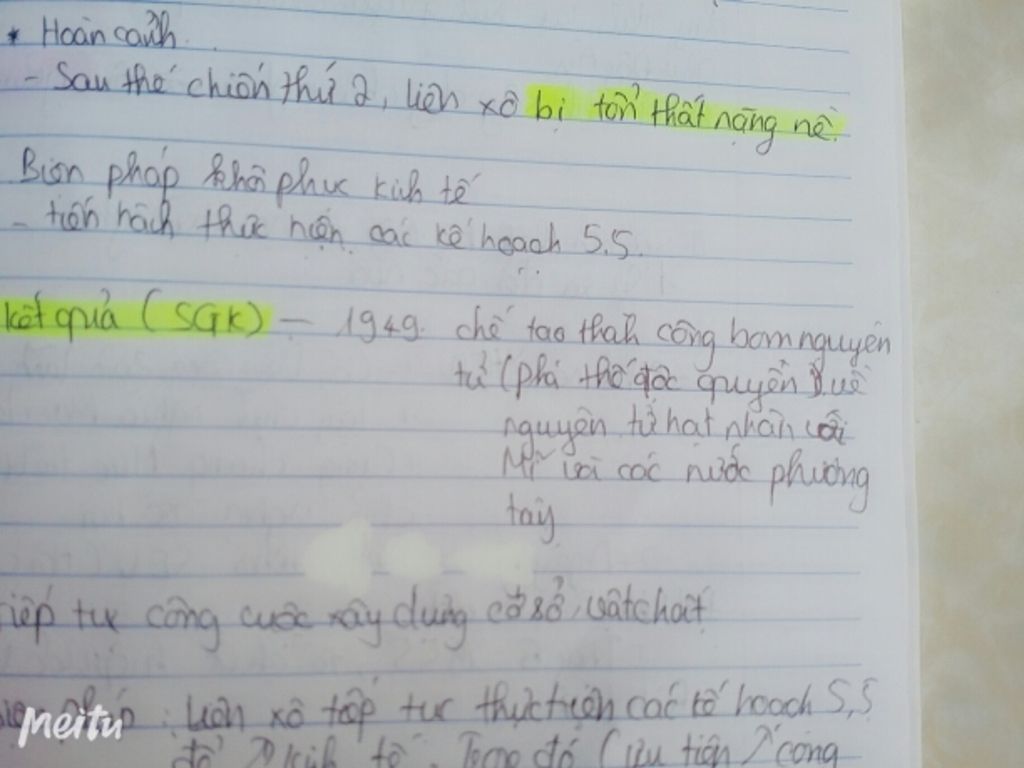 * Hoàn cảnh
- Sau thế chiến thứ 2, liên xô bị tổn thất nặng nề.
Biện pháp khôi phục kinh tế
- tiến hành thực hiện các kế hoạch 5,5.
kết quả (SGK) - 1949. chế tạo thành công bom nguyên
tử (phá thế độc quyền về
nguyên tử hạt nhân với
Mĩ với các nước phương
tây
tiếp tục công cuộc xây dựng cơ sở vật chất
pháp: Liên xô tiếp tục thực hiện các kế hoạch 5,5
kinh tế. Trong đó (ưu tiên công
Meitu